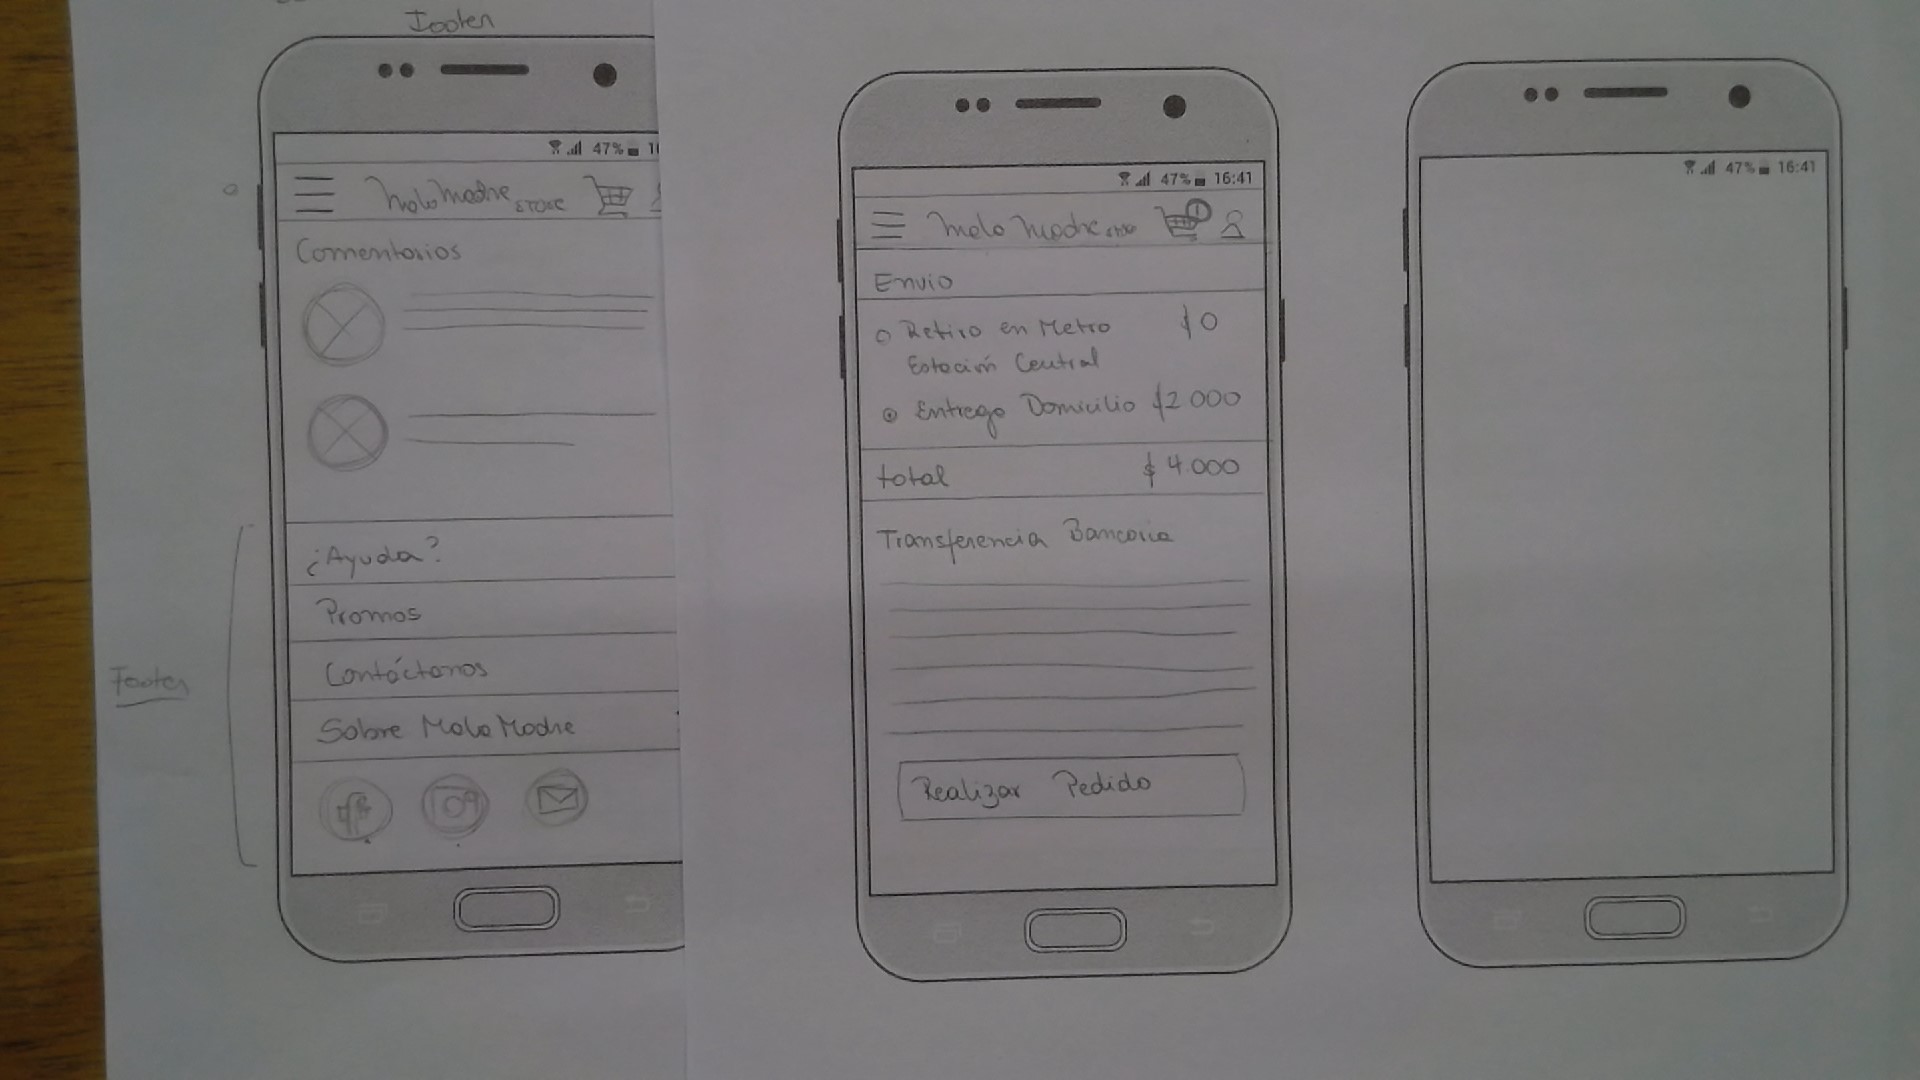 Footer
47%
MalaMadre STORE
Comentarios
¿Ayuda?
Promos
Contáctanos
Sobre MalaMadre
Footer
47% 16:41
Mala Madre
1
Envio
Retiro en Metro $0
Estación Central
Entrega Domicilio $2000
total $4.000
Transferencia Bancaria
Realizar Pedido
47% 16:41